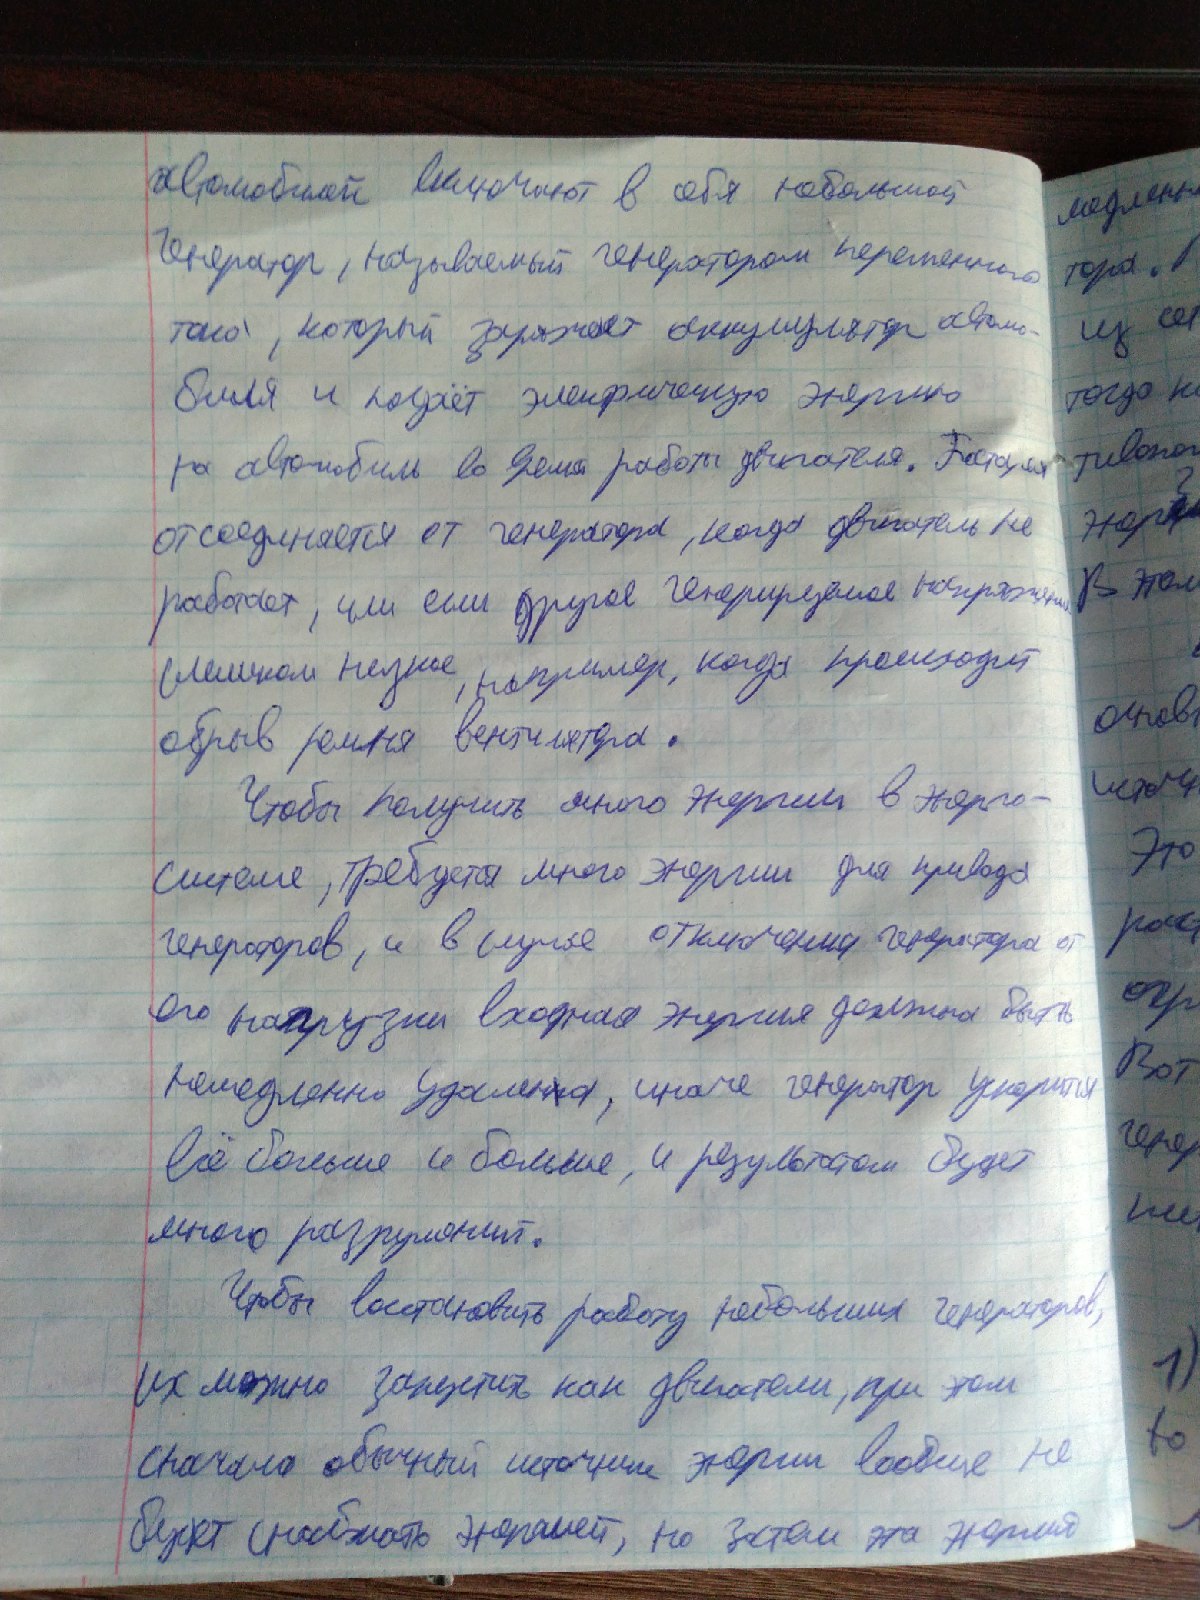 автомобилей включают в себя небольшой
генератор, называемый генератором переменного
тока, который заряжает аккумулятор автомо-
биля и подаёт электрическую энергию
на автомобиль во время работы двигателя. Батарея
отсоединяется от генератора, когда двигатель не
работает, или если другое генерируемое напряжение
слишком низкое, например, когда происходит
обрыв ремня вентилятора.
Чтобы получить много энергии в энерго-
системе, требуется много энергии для привода
генераторов, и в случае отключения генератора от
его нагрузки входная энергия должна быть
немедленно удалена, иначе генератор ускорится
всё больше и больше, и результатом будет
много разрушений.
Чтобы восстановить работу небольших генераторов,
их можно запустить как двигатели, при этом
сначала обычный источник энергии вообще не
будет снабжать энергией, но затем эта энергия
медленн
тора.
из
тогда
энерг
В этом
основ
источ
Это
Вот
генер
1)